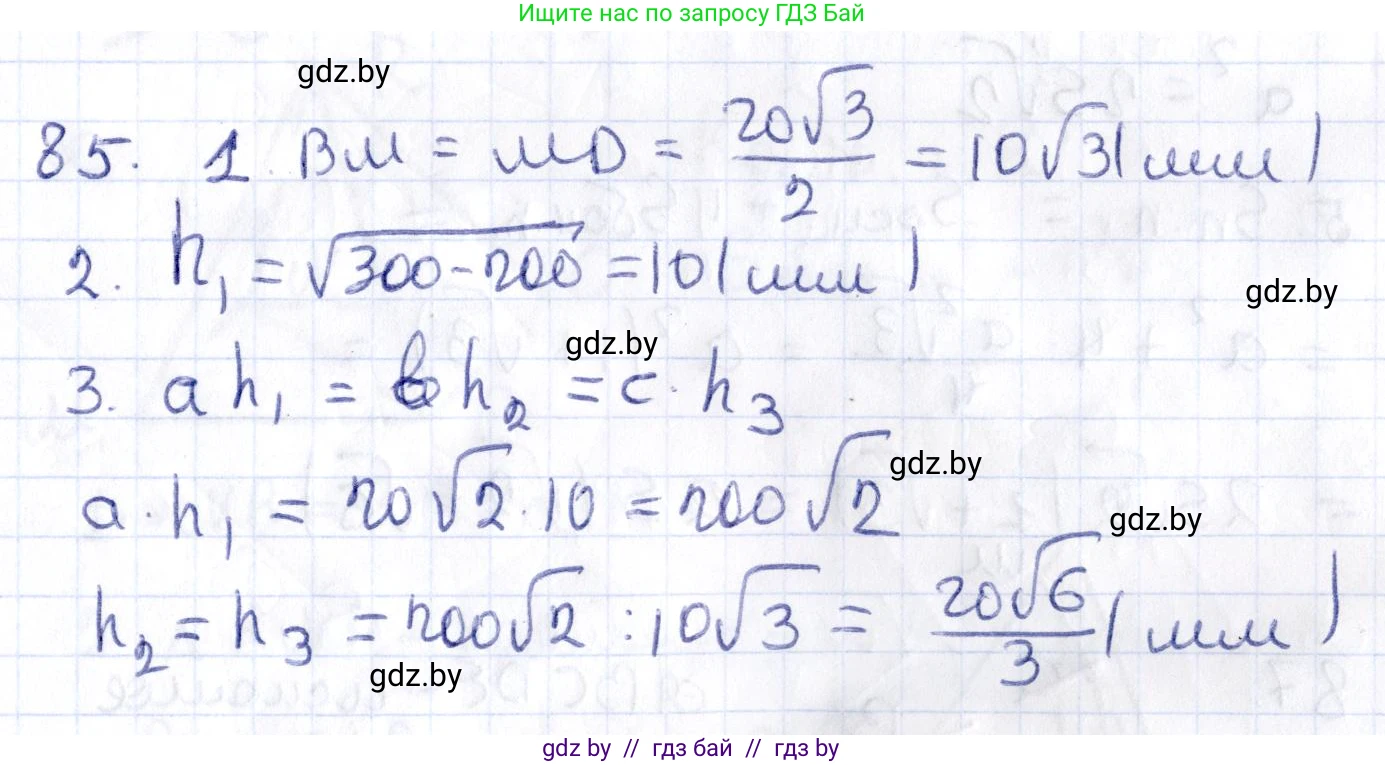 Ищите нас по запросу ГДЗ Бай
gdz.by
85. 1. BM = MD = 20√3/2 = 10√3 (мм)
2. h₁ = √300-200 = 10 (мм)
gdz.by
gdz.by
3. a h₁ = b h₂ = c · h₃
gdz.by
a · h₁ = 20√2 · 10 = 200√2
gdz.by
h₂ = h₃ = 200√2 : 10√3 = 20√6/3 (мм)
gdz.by
gdz by // гдз бай // гдз by